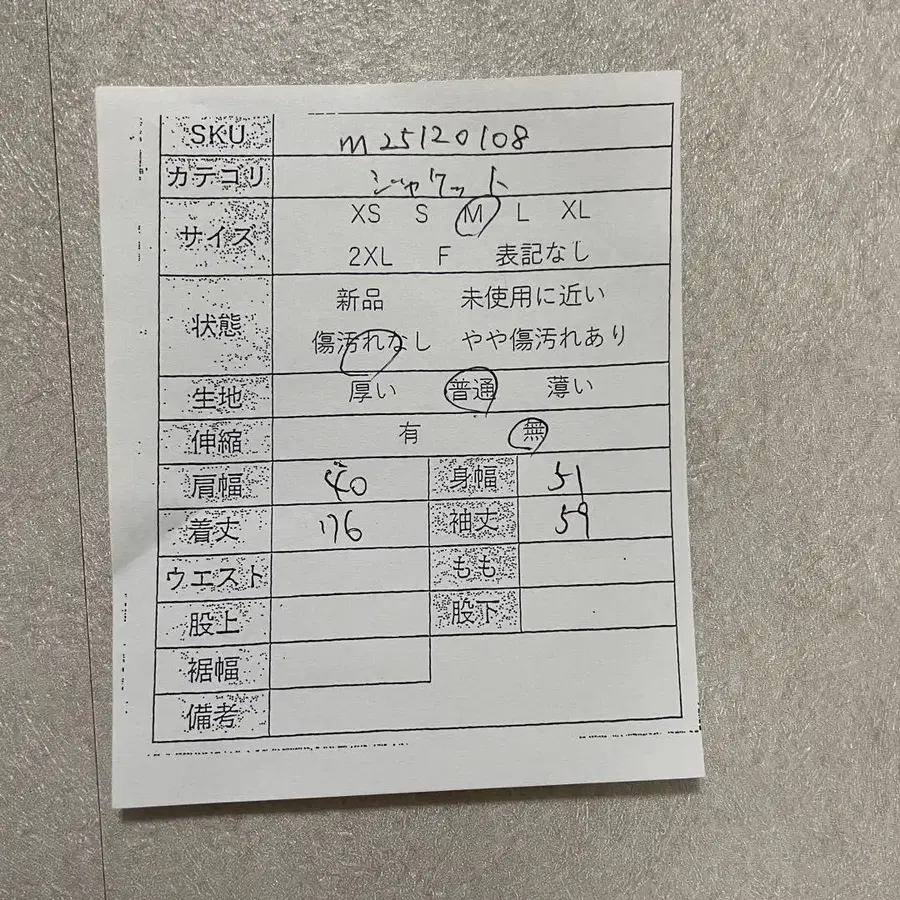 SKU m25120108
カテゴリ ジャケット
サイズ XS S M L XL
2XL F 表記なし
状態 新品 未使用に近い
傷汚れなし やや傷汚れあり
生地 厚い 普通 薄い
伸縮 有 無
肩幅 40 身幅 51
着丈 76 袖丈 59
ウエスト もも
股上 股下
裾幅
備考